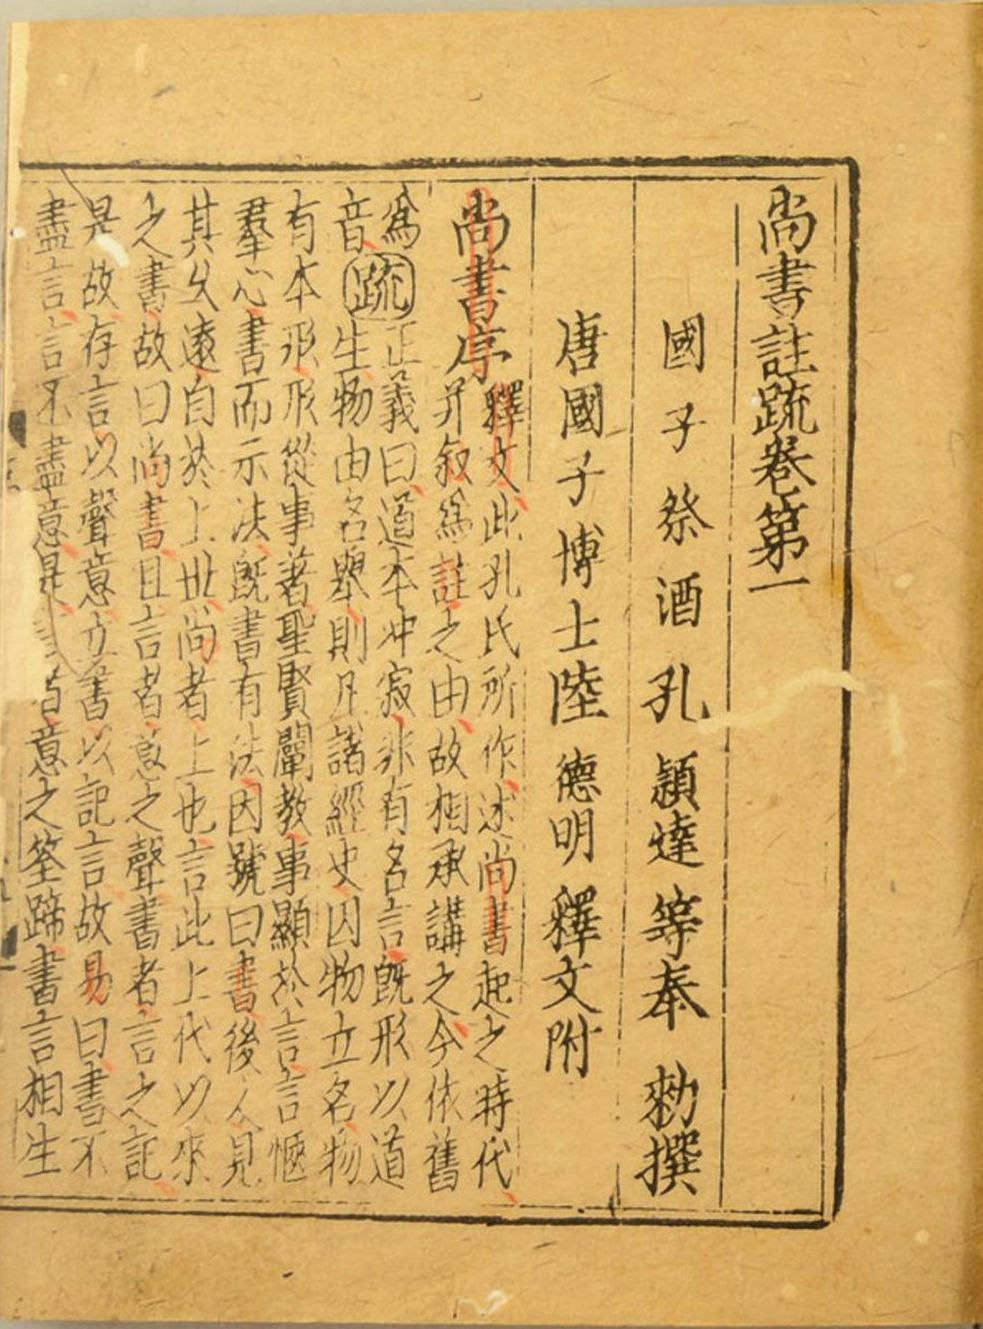 尚書註疏卷第一
國子祭酒孔頴達等奉 勑撰
唐國子博士陸德明釋文附
尚書序釋文此孔氏所作述尚書起之時代
并叙爲註之由故相承講之今依舊
爲
音
疏
正義曰道本冲寂非有名言既形以道
生物由名舉則凡諸經史因物立名物
有本形形從事著聖賢闡教事顯於言言愜
羣心書而示法既書有法因號曰書後人見
其久遠自於上世尚者上也言此上代以來
之書故曰尚書且言者意之聲書者言之記
是故存言以聲意立書以記言故易曰書不
盡言言不盡意是者意之筌蹄書言相生